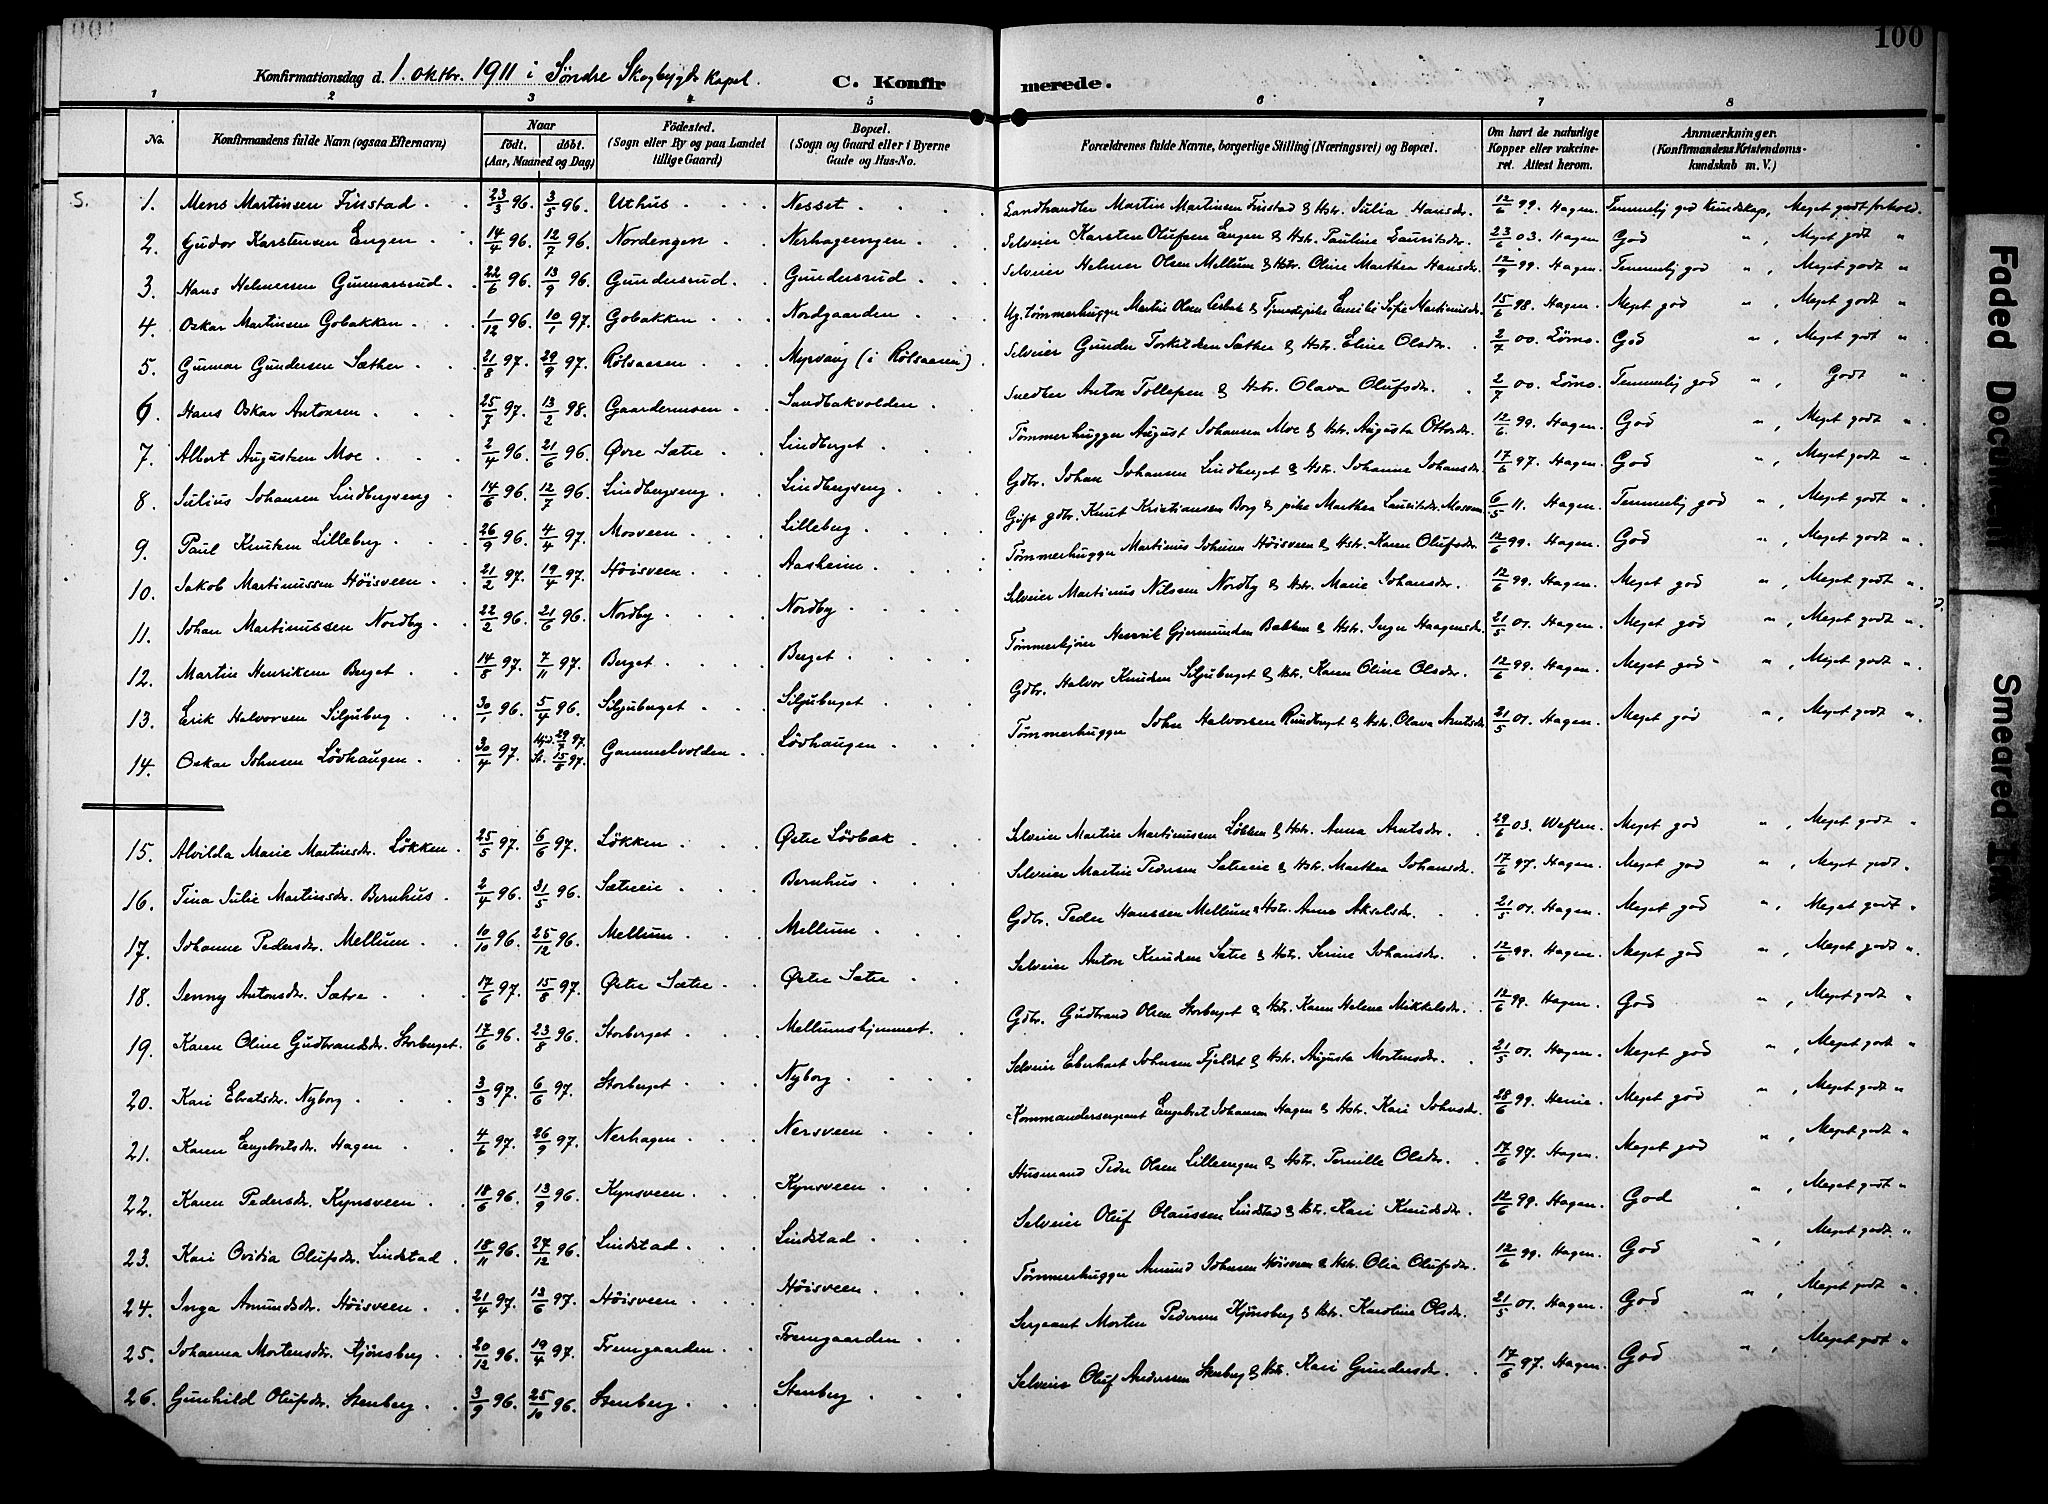 100
Konfirmationsdag d. 1. oktbr. 1911 i Søndre Skogbygds Kapel. C. Konfirmerede.
1 2 3 4 5 6 7 8
No. Konfirmandens fulde Navn (ogsaa Efternavn) Naar født. døbt. (Aar, Maaned og Dag) Födested. (Sogn eller By og paa Landet tillige Gaard) Bopæl. (Sogn og Gaard eller i Byerne Gade og Hus-No. Forældrenes fulde Navne, borgerlige Stilling (Næringsvei) og Bopæl. Om havt de naturlige Kopper eller vaccineret. Attest herom. Anmærkninger. (Konfirmandens Kristendomskundskab m. V.)
S. 1. Mens Martinsen Finstad 23/3 96. 3/5 96. Uthus Nesset Landhandler Martin Martinsen Finstad & Hstr. Julia Hansdr. 12/6 99. Hagen. Temmelig god Kundskap, Meget godt forhold.
2. Gudor Karstensen Engen 14/4 96. 12/7 96. Nordengen Nerhageengen Selveier Karsten Olufsen Engen & Hstr. Pauline Lauritsdr. 23/6 03. Hagen God " , Meget godt "
3. Hans Helmersen Gunnarsrud 22/6 96. 13/9 96. Gundersrud Gundersrud Selveier Helmer Olsen Mellum & Hstr. Oline Marthea Hansdr. 12/9 99. Hagen Temmelig god " , Meget godt "
4. Oskar Martinsen Gobakken 1/12 96. 10/1 97. Gobakken Nordgaarden Ug. Tømmerhugger Martin Olsen & Tjenestepike Emilie Sofie Martinusdr. 15/6 98. Hagen Meget god " , Meget godt "
5. Gunnar Gundersen Sæther 21/8 97. 29/9 97. Rølsaasen Myrvang (i Rølsaasen) Selveier Gunder Torkildsen Sæther & Hstr. Eline Olsdr. 2/7 00. Lømo. God " , Meget godt "
6. Hans Oskar Antonsen 25/7 97. 13/2 98. Gaardermoen Sandbakvolden Snedker Anton Tollefsen & Hstr. Olava Olufsdr. 2/7 00. Lømo. Temmelig god " , Godt "
7. Albert Augustsen Moe 2/4 96. 21/6 96. Øvre Sætre Lindberget Tømmerhugger August Johansen Moe & Hstr. Augusta Ottosdr. 12/6 99. Hagen. God " , Meget godt "
8. Julius Johansen Lindbergseng 14/6 96. 12/7 96. Lindbergseng Lindbergseng Gdbr. Johan Johansen Lindberget & Hstr. Johanne Johansdr. 17/6 97. Hagen. God " , Meget godt "
9. Paul Knutsen Lilleberg 26/9 96. 4/4 97. Mosveen Lilleberg Gift gdbr. Knut Kristiansen Borg & pike Marthea Lauritsdr. Mosveen 6/5 11. Hagen. Temmelig god " , Meget godt "
10. Jakob Martinussen Höisveen 21/2 97. 19/4 97. Höisveen Aasheim Tømmerhugger Martinus Johnsen Höisveen & Hstr. Karen Olufsdr. 12/6 99. Hagen. God " , Meget godt "
11. Johan Martinussen Nordby 22/2 96. 21/6 96. Nordby Nordby Selveier Martinus Nilssen Nordby & Hstr. Marie Johansdr. 12/6 99. Hagen. Meget god " , Meget godt "
12. Martin Henriksen Berget 14/8 97. 7/11 97. Berget Berget Tømmerkjører Henrik Gjermundsen Bakken & Hstr. Inger Haagensdr. 21/5 01. Hagen. Meget god " , Meget godt "
13. Erik Halvorsen Siljuberg 30/1 96. 5/4 96. Siljuberget Siljuberget Gdbr. Halvor Knudsen Siljuberget & Hstr. Karen Oline Olsdr. 12/6 99. Hagen. Meget god " , Meget godt "
14. Oskar Johnsen Lövhaugen 30/4 97. Gammelvolden Lövhaugen Tømmerhugger John Halvorsen Rundberget & Hstr. Olava Arntsdr. 21/5 01. Hagen. Meget god " , Meget godt "
15. Alvilda Marie Martinsdr. Løkken 25/5 97. 6/6 97. Løkken Østre Lövbak Selveier Martin Martinussen Løkken & Hstr. Anna Arntsdr. 29/6 03. Meget god " , Meget godt "
16. Tina Julie Martinsdr. Bernhus 2/4 96. 31/5 96. Sætreeie Bernhus Selveier Martin Pedersen Sætreeie & Hstr. Marthea Johansdr. 17/6 97. Hagen. Meget god " , Meget godt "
17. Johanne Pedersdr. Mellum 10/10 96. 25/12 96. Mellum Mellum Gdbr. Peder Hanssen Mellum & Hstr. Anne Akselsdr. 21/5 01. Hagen. Meget god " , Meget godt "
18. Jenny Antonsdr. Sætre 17/6 97. 15/8 97. Østre Sætre Østre Sætre Selveier Anton Knudsen Sætre & Hstr. Serine Johansdr. 12/6 99. Hagen. Meget god " , Meget godt "
19. Karen Oline Gudbrandsdr. Storberget 17/6 96. 23/8 96. Storberget Mellumshjemmet. Gdbr. Gudbrand Olsen Storberget & Hstr. Karen Helene Mikkelsdr. 12/6 99. Hagen. God " , Meget godt "
20. Kari Ebratsdr. Nyborg 3/3 97. 6/6 97. Storberget Nyborg Selveier Eberhart Johnsen Fjeldet & Hstr. Augusta Mortensdr. 21/5 01. Hagen. Meget god " , Meget godt "
21. Karen Engebretsdr. Hagen 4/6 97. 26/9 97. Nerhagen Nersveen Kommandersergeant Engebret Johansen Hagen & Hstr. Kari Johnsdr. 28/6 99. Henie. Meget god " , Meget godt "
22. Karen Pedersdr. Kynsveen 18/6 96. 13/9 96. Kynsveen Kynsveen Husmand Peder Olsen Lilleengen & Hstr. Pernille Olsdr. 17/6 97. Hagen. Meget god " , Meget godt "
23. Kari Ovidia Olufsdr. Lindstad 18/11 96. 27/12 96. Lindstad Lindstad Selveier Oluf Olaussen Lindstad & Hstr. Kari Knudsdr. 12/6 99. Hagen. God " , Meget godt "
24. Inga Amundsdr. Höisveen 21/4 97. 13/6 97. Höisveen Höisveen Tømmerhugger Amund Johnsen Höisveen & Hstr. Olia Olufsdr. 12/6 99. Hagen. God " , Meget godt "
25. Johanna Mortensdr. Kjönsberg 20/12 96. 19/4 97. Fremgaarden Fremgaarden Sergeant Morten Pedersen Kjönsberg & Hstr. Karoline Olsdr. 21/5 01. Hagen. God " , Meget godt "
26. Gunhild Olufsdr. Stenberg 3/9 96. 25/10 96. Stenberg Stenberg Selveier Oluf Andersen Stenberg & Hstr. Kari Gundersdr. 17/6 97. Hagen. God " , Meget godt "
Faded Document
Smeared Ink